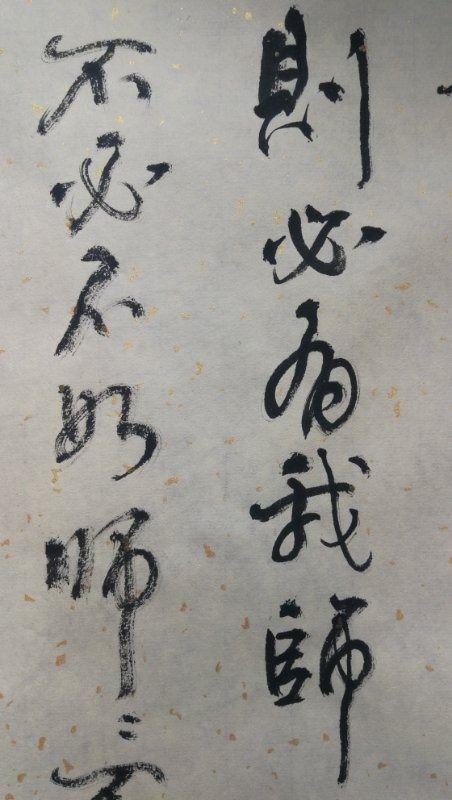 則必有我師
不必不如師々不